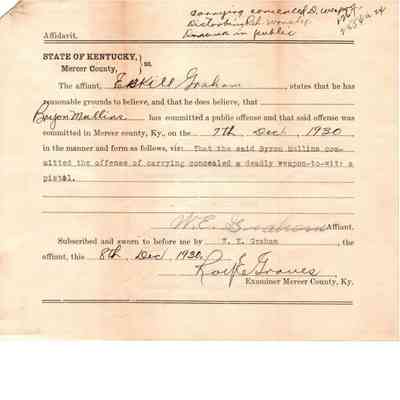 carrying concealed D. weapon
Disturbing Rel. worship
Drunk in public
Affidavit.
STATE OF KENTUCKY, } ss.
Mercer County,
The affiant, Eskill Graham, states that he has
reasonable grounds to believe, and that he does believe, that
Boyon Mullins has committed a public offense and that said offense was
committed in Mercer county, Ky., on the 7th Dec, 1930
in the manner and form as follows, viz: That the said Byron Mullins com-
mitted the offense of carrying concealed a deadly weapon-to-wit: a
pistol.
W.E. Graham Affiant.
Subscribed and sworn to before me by W. E. Graham, the
affiant, this 8th, Dec, 1930.
Graves
Examiner Mercer County, Ky.